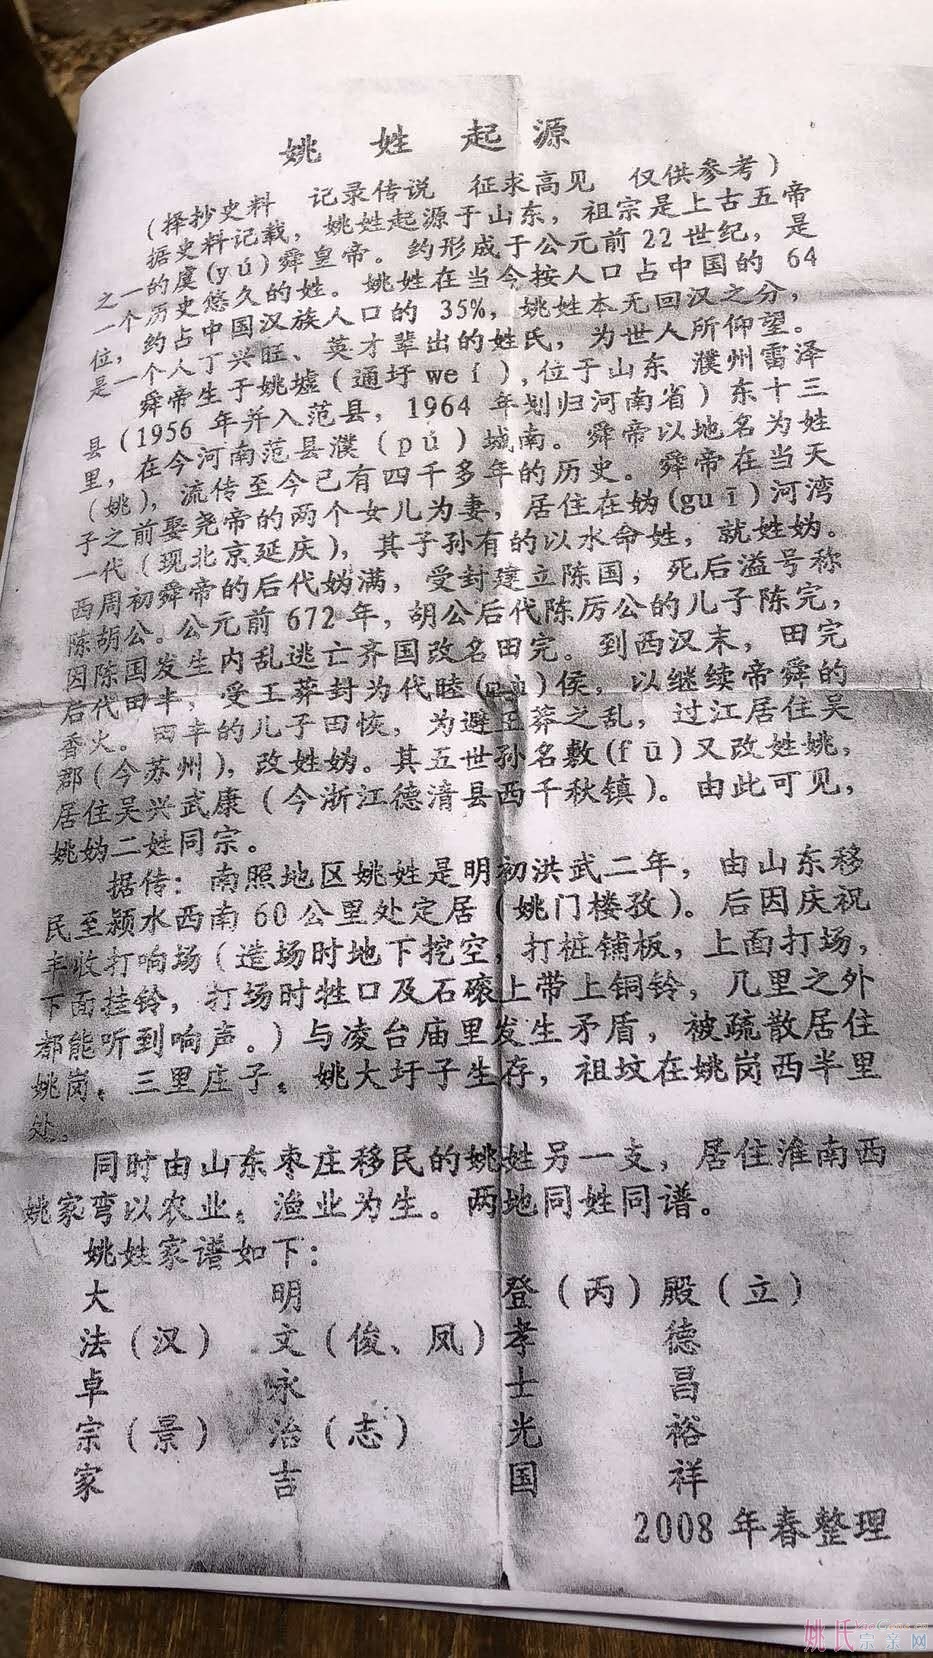 姚 姓 起 源
（择抄史料 记录传说 征求高见 仅供参考）
据史料记载，姚姓起源于山东，祖宗是上古五帝
之一的虞(yú)舜皇帝。约形成于公元前22世纪，是
一个历史悠久的姓。姚姓在当今按人口占中国的 64
位，约占中国汉族人口的 35%，姚姓本无回汉之分，
是一个人丁兴旺、英才辈出的姓氏，为世人所仰望。
舜帝生于姚墟（通圩weí），位于山东 濮州雷泽
县（1956 年并入范县，1964 年划归河南省）东十三
里，在今河南范县濮（pú）城南。舜帝以地名为姓
（姚），流传至今已有四千多年的历史。舜帝在当天
子之前娶尧帝的两个女儿为妻，居住在妫(guī)河湾
一代（现北京延庆），其子孙有的以水命姓，就姓妫。
西周初舜帝的后代妫满，受封建立陈国，死后溢号称
陈胡公。公元前672年，胡公后代陈厉公的儿子陈完，
因陈国发生内乱逃亡齐国改名田完。到西汉末，田完
后代田丰，受王莽封为代睦( )侯，以继续帝舜的
香火。田丰的儿子田恢，为避王莽之乱，过江居住吴
郡（今苏州），改姓妫。其五世孙名敷(fū)又改姓姚，
居住吴兴武康（今浙江德清县西千秋镇）。由此可见，
姚妫二姓同宗。
据传：南照地区姚姓是明初洪武二年，由山东移
民至颍水西南60公里处定居（姚门楼孜）。后因庆祝
丰收打响场（造场时地下挖空，打桩铺板，上面打场，
下面挂铃，打场时牲口及石磙上带上铜铃，几里之外
都能听到响声。）与凌台庙里发生矛盾，被疏散居住
姚岗、三里庄子、姚大圩子生存，祖坟在姚岗西半里
处。
同时由山东枣庄移民的姚姓另一支，居住淮南西
姚家弯以农业、渔业为生。两地同姓同谱。
姚姓家谱如下：
大 明 登（丙）殿（立）
法（汉） 文（俊、凤）孝 德
卓 永 士 昌
宗（景） 治（志） 光 裕
家 吉 国 祥
2008 年春整理
姚氏宗亲网